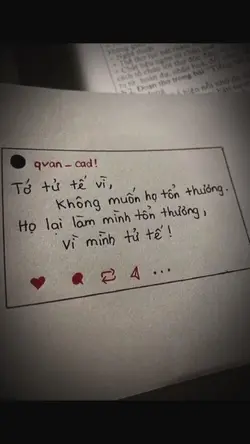 qvan_cad!
Tớ tử tế vì,
không muốn họ tổn thương.
Họ lại làm mình tổn thương,
vì mình tử tế!